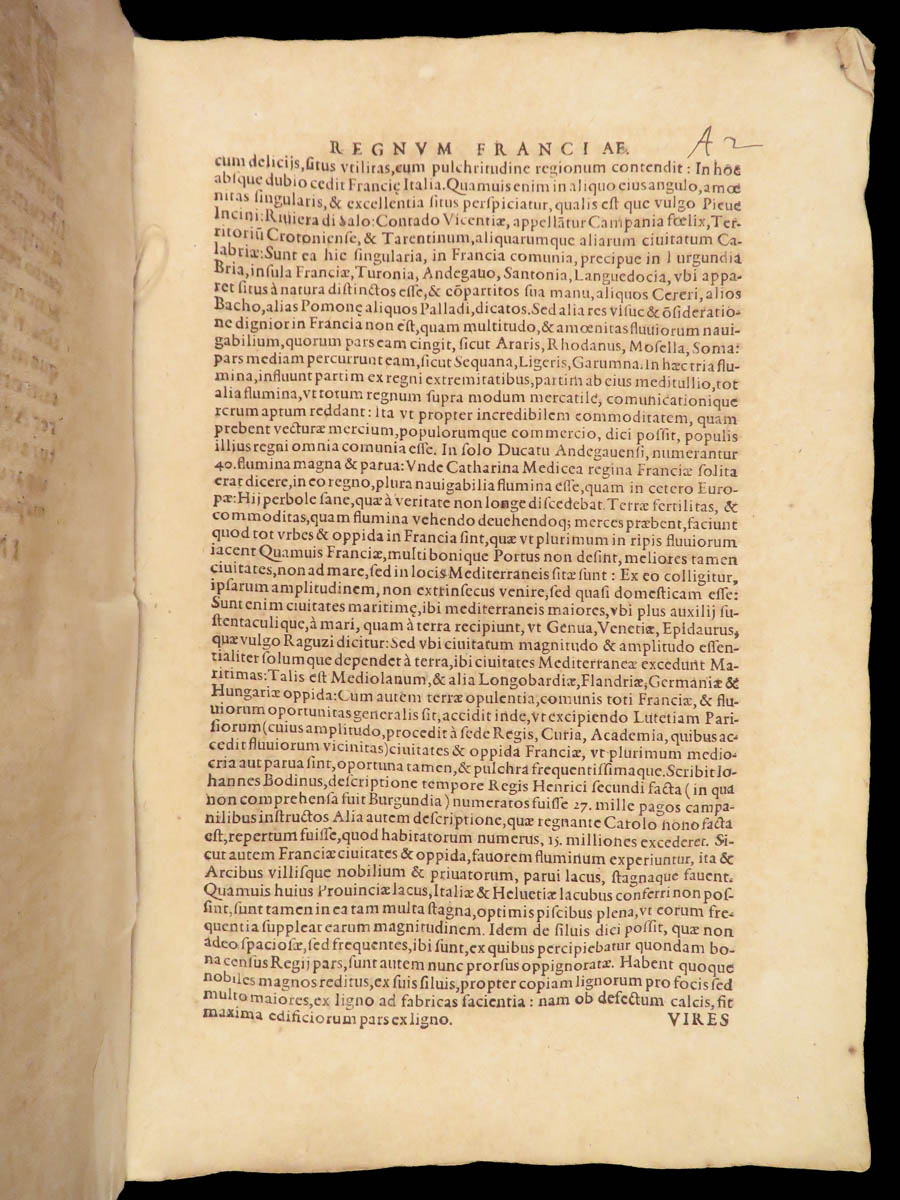 REGNVM FRANCIAE.
A 2
cum delicijs, ſitus vtilitas, cum pulchritudine regionum contendit: In hoc
abſque dubio cedit Francię Italia. Quamuis enim in aliquo eius angulo, amœ
nitas ſingularis, & excellentia ſitus perſpiciatur, qualis eſt que vulgo Pieue
Incini: Riuiera di Salo: Contado Vicentiæ, appellātur Campania fœlix, Ter-
ritoriū Crotonienſe, & Tarentinum, aliquarumque aliarum ciuitatum Ca-
labriæ: Sunt ea hic ſingularia, in Francia comunia, precipue in urgundia
Bria, inſula Franciæ, Turonia, Andegauo, Santonia, Languedocia, vbi appa-
ret ſitus à natura diſtinctos eſſe, & cōpartitos ſua manu, aliquos Cereri, alios
Bacho, alias Pomonę aliquos Palladi, dicatos. Sed alia res viſuc & ōſideratio-
ne dignior in Francia non eſt, quam multitudo, & amœnitas fluuiorum naui-
gabilium, quorum pars eam cingit, ſicut Araris, Rhodanus, Moſella, Soma:
pars mediam percurrunt eam, ſicut Sequana, Ligeris, Garumna. In hæc tria flu-
mina, influunt partim ex regni extremitatibus, partim ab eius meditullio, tot
alia flumina, vt totum regnum ſupra modum mercatile, comunicationique
rerum aptum reddant: Ita vt propter incredibilem commoditatem, quam
prebent vecturæ mercium, populorumque commercio, dici poſſit, populis
illius regni omnia comunia eſſe. In ſolo Ducatu Andegauenſi, numerantur
40. flumina magna & parua: Vnde Catharina Medicea regina Franciæ ſolita
erat dicere, in eo regno, plura nauigabilia flumina eſſe, quam in cetero Euro-
pæ: Hijperbole ſane, quæ à veritate non longe diſcedebat. Terræ fertilitas, &
commoditas, quam flumina vehendo deuehendoq; merces præbent, faciunt
quod tot vrbes & oppida in Francia ſint, quæ vt plurimum in ripis fluuiorum
iacent Quamuis Franciæ, multi bonique Portus non deſint, meliores tamen
ciuitates, non ad mare, ſed in locis Mediterraneis ſitæ ſunt: Ex eo colligitur,
ipſarum amplitudinem, non extrinſecus venire, ſed quaſi domeſticam eſſe:
Sunt enim ciuitates maritimę, ibi mediterraneis maiores, vbi plus auxilij ſu-
ſtentaculique, à mari, quam à terra recipiunt, vt Genua, Venetiæ, Epidaurus,
quæ vulgo Raguzi dicitur: Sed vbi ciuitatum magnitudo & amplitudo eſſen-
tialiter ſolumque dependet à terra, ibi ciuitates Mediterraneæ excedunt Ma-
ritimas: Talis eſt Mediolanum, & alia Longobardiæ, Flandriæ, Germaniæ &
Hungariæ oppida: Cum autem terræ opulentia, comunis toti Franciæ, & flu-
uiorum oportunitas generalis ſit, accidit inde, vt excipiendo Lutetiam Pari-
ſiorum (cuius amplitudo, procedit à ſede Regis, Curia, Academia, quibus ac-
cedit fluuiorum vicinitas) ciuitates & oppida Franciæ, vt plurimum medio-
cria aut parua ſint, oportuna tamen, & pulchra frequentiſſimaque. Scribit Io-
hannes Bodinus, deſcriptione tempore Regis Henrici ſecundi facta (in qua
non comprehenſa fuit Burgundia) numeratos fuiſſe 27. mille pagos campa-
nilibus inſtructos Alia autem deſcriptione, quæ regnante Carolo nono facta
eſt, repertum fuiſſe, quod habitatorum numerus, 15. milliones excederet. Si-
cut autem Franciæ ciuitates & oppida, fauorem fluminum experiuntur, ita &
Arcibus villiſque nobilium & priuatorum, parui lacus, ſtagnaque fauent.
Quamuis huius Prouinciæ lacus, Italiæ & Heluetiæ lacubus conferri non poſ-
ſint, ſunt tamen in ea tam multa ſtagna, optimis piſcibus plena, vt eorum fre-
quentia ſuppleat earum magnitudinem. Idem de ſiluis dici poſſit, quæ non
adeo ſpacioſæ, ſed frequentes, ibi ſunt, ex quibus percipiebatur quondam bo-
na cenſus Regij pars, ſunt autem nunc prorſus oppignoratæ. Habent quoque
nobiles magnos reditus, ex ſuis ſiluis, propter copiam lignorum pro focis ſed
multo maiores, ex ligno ad fabricas facientia: nam ob defectum calcis, fit
maxima edificiorum pars ex ligno.
VIRES